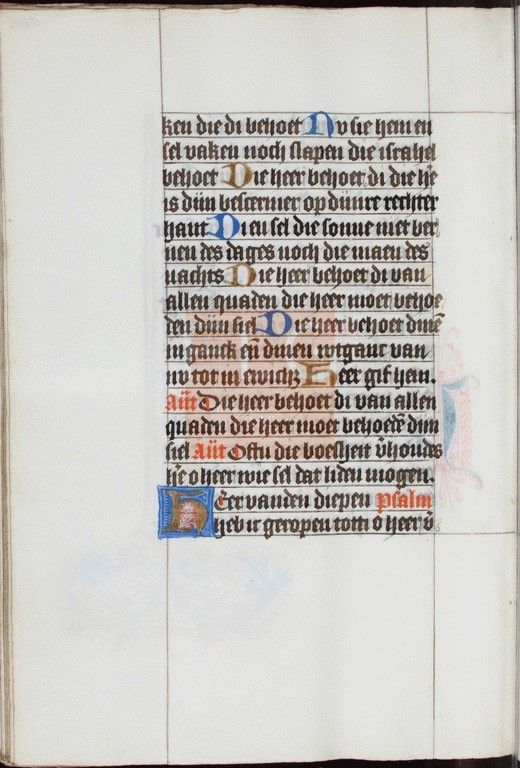 ken die di behoet Nu sie hem en
sel vaken noch slapen die israhel
behoet Die heer behoet di die he᷑
is dijn beschermer op dijnre rechter
hant Di en sel die sonne niet ber
nen des dages noch die maen des
nachts Die heer behoet di van
allen quaden die heer moet behoe
den dijn siel Die heer behoet dinē
inganck eñ dinen wtganc van
nv tot in ewichz Heer gif hem.
Añt Die heer behoet di van allen
quaden die heer moet behoedē dijn
siel Añt Oftu die boesheit v̄houds
he᷑ o heer wie sel dat liden mogen.
HEer vanden diepen Psalm
heb ic geropen totti o heer v̄